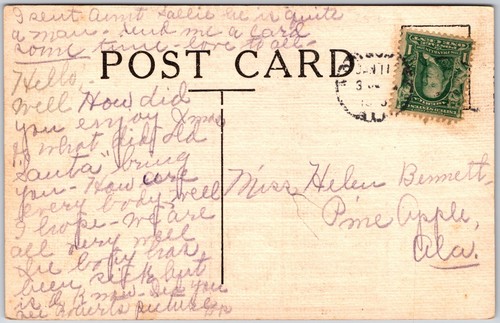 I sent Aunt Sallie he is quite
a man - send me a card
some time - love to all -
POST CARD
JAN 11
Hello,
Well How did
you enjoy Xmas
& what did old
"Santa" bring
you - How are
every body - well
I hope - we are
all very well
the baby has
been sick but
is O.K. now - did you
see Roberts picture
Miss Helen Bennett,
Pine Apple,
Ala.